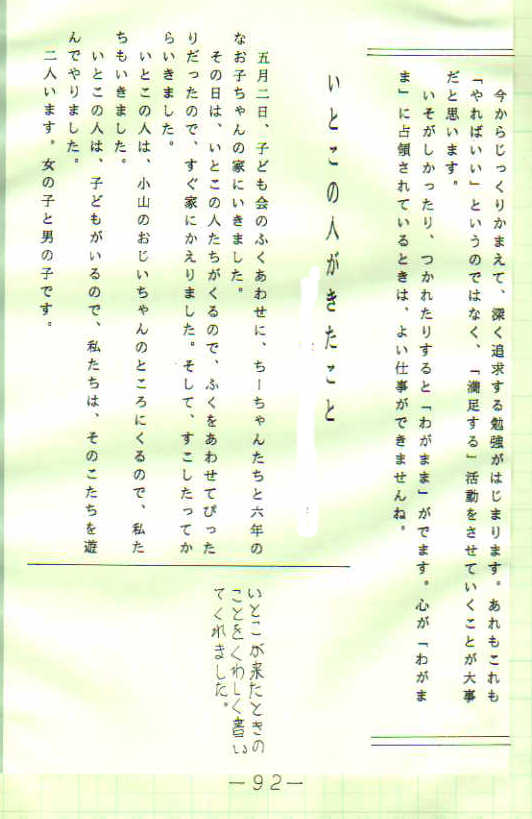 今からじっくりかまえて、深く追求する勉強がはじまります。あれもこれも
「やればいい」というのではなく、「満足する」活動をさせていくことが大事
だと思います。
いそがしかったり、つかれたりすると「わがまま」がでます。心が「わがま
ま」に占領されているときは、よい仕事ができませんね。
いとこの人がきたこと
五月二日、子ども会のふくあわせに、ちーちゃんたちと六年の
なお子ちゃんの家にいきました。
その日は、いとこの人たちがくるので、ふくをあわせてぴった
りだったので、すぐ家にかえりました。そして、すこしたってか
らいきました。
いとこの人は、小山のおじいちゃんのところにくるので、私た
ちもいきました。
いとこの人は、子どもがいるので、私たちは、そのこたちを遊
んでやりました。
二人います。女の子と男の子です。
いとこが来たときの
ことをくわしく書い
てくれました。
－９２－